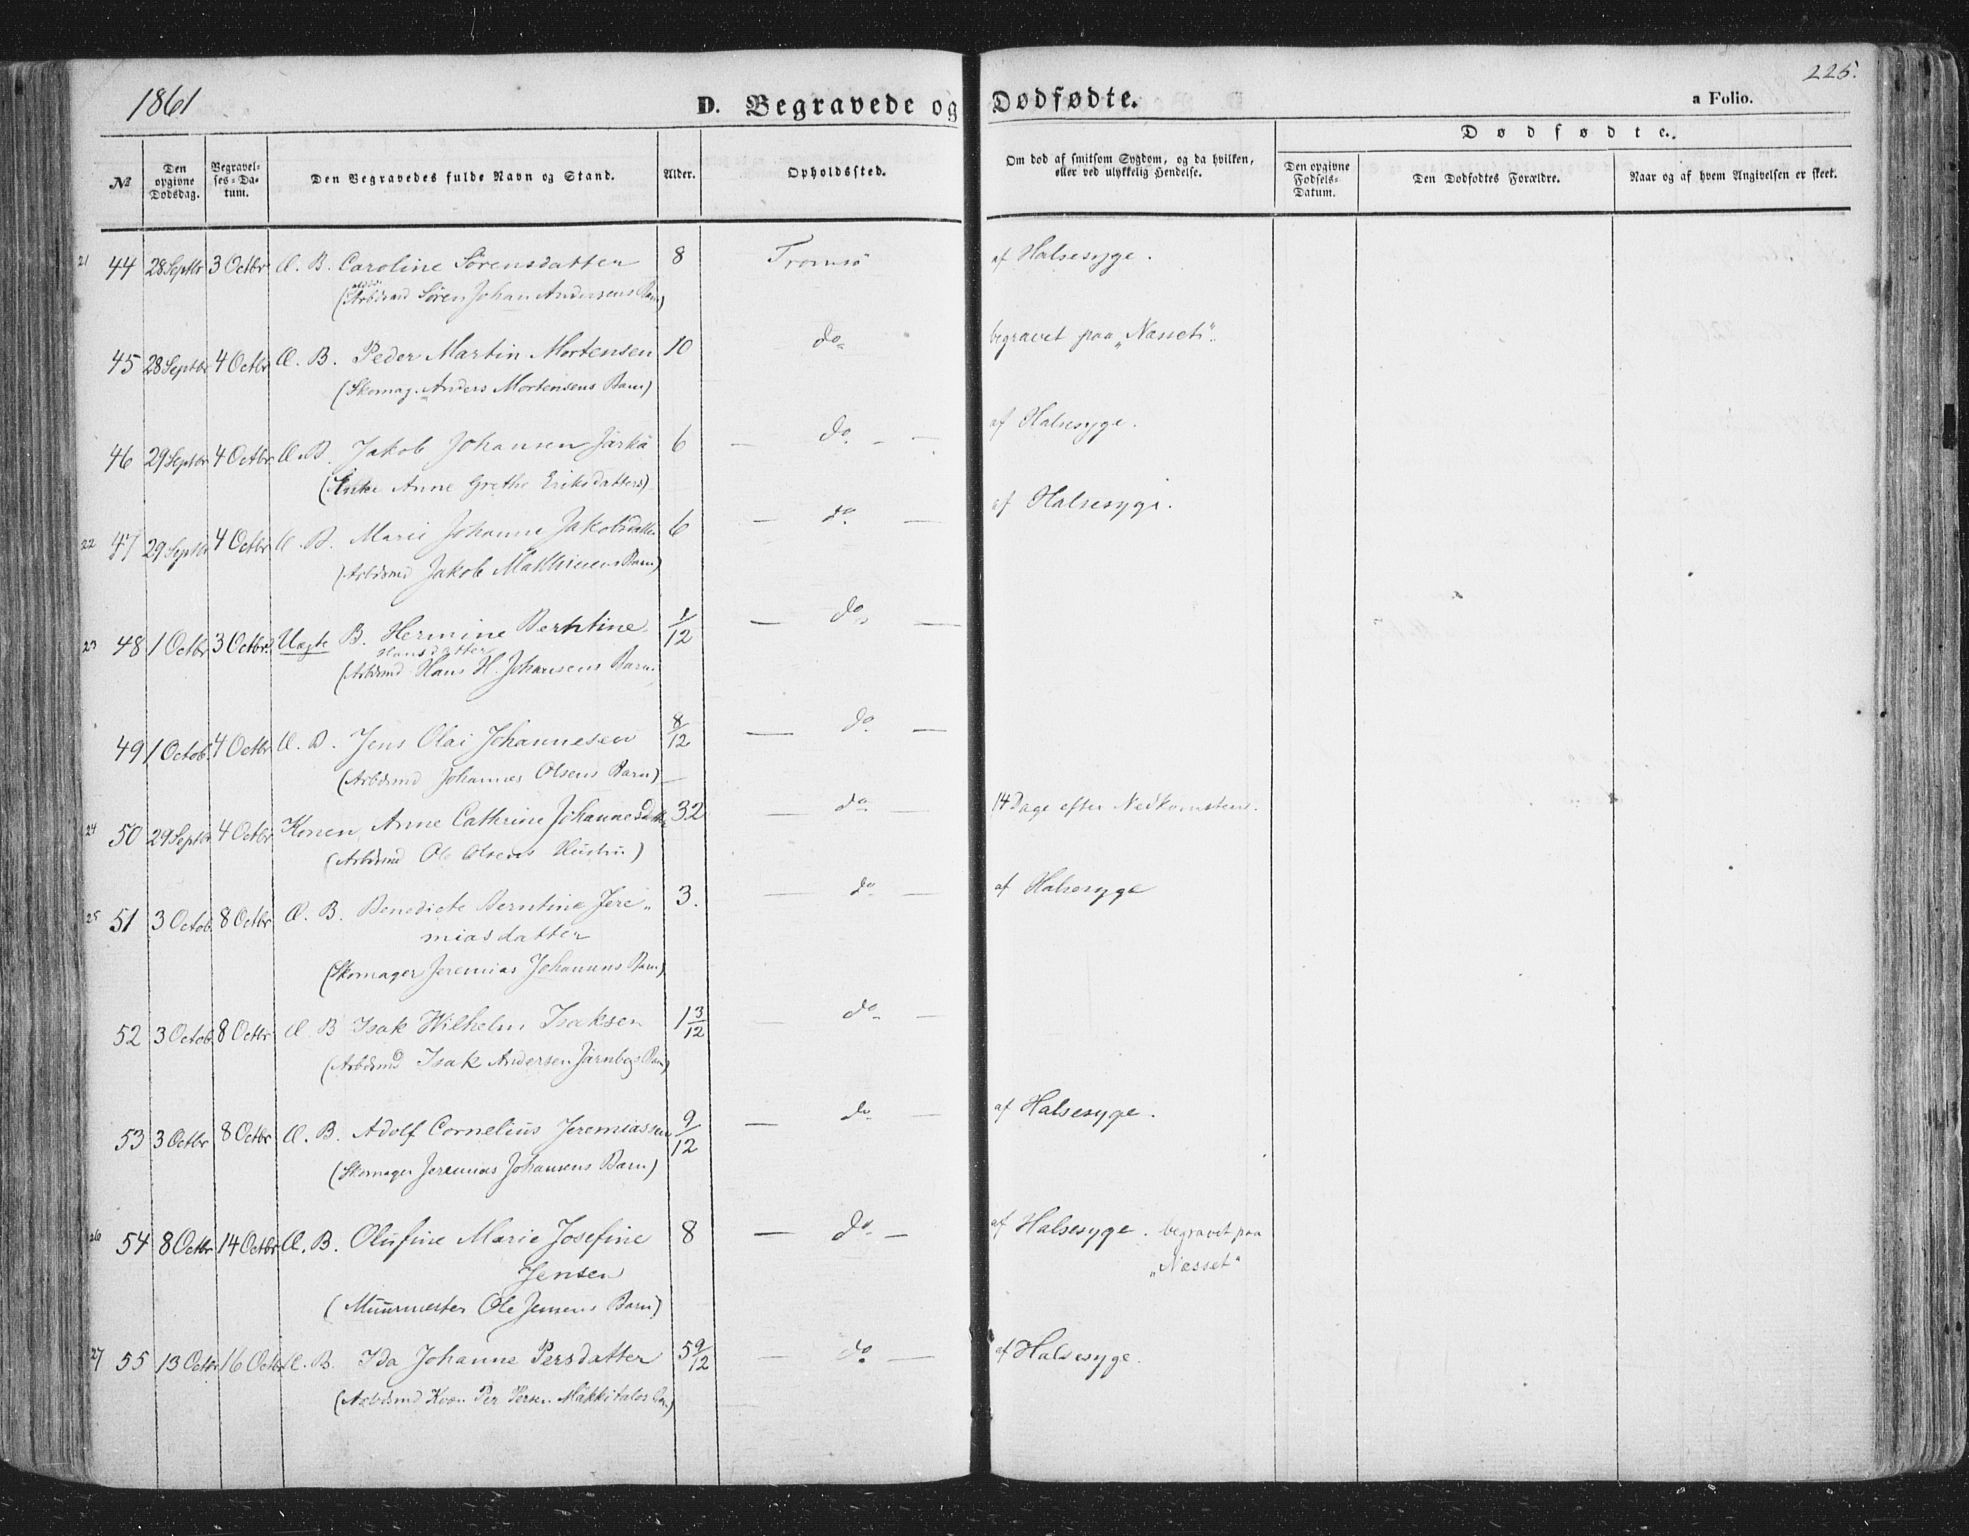 1861
D. Begravede og Dødfødte.
225.
a Folio.
No
Den opgivne Dødsdag.
Begravelses-Datum.
Den Begravedes fulde Navn og Stand.
Alder.
Opholdssted.
Om død af smitsom Sygdom, og da hvilken, eller ved ulykkelig Hendelse.
Dødfødte.
Den opgivne Fødsels-Datum.
Den Dødfødtes Forældre.
Naar og af hvem Angivelsen er skeet.
21 44 28 Septbr 3 Octbr Æ. B. Caroline Sørensdatter 8 Tromsø af Halsesyge.
(Arbdsmd Søren Johan Andersens Barn)
45 28 Septbr 4 Octbr Æ. B. Peder Martin Mortensen 10 do begravet paa „Næsset“.
(Skomag. Anders Mortensens Barn)
46 29 Septbr 4 Octbr Æ. B. Jakob Johansen Järkä 6 — do — af Halsesyge.
(Enke Anne Grethe Eriksdatters)
22 47 29 Septbr 4 Octbr Æ. B. Marie Johanne Jakobsdatter 6 — do — af Halsesyge.
(Arbdsmd Jakob Barn)
23 48 1 Octbr 3 Octbr Uægte B. Hermine Berntine 1/12 — do —
Hansdatter
(Arbdsmd Hans H. Johansens Barn)
49 1 Octob. 4 Octbr Æ. B. Jens Olai Johannesen 8/12 — do —
(Arbdsmd Johannes Olsens Barn)
24 50 29 Septbr 4 Octbr Konen Anne Cathrine Johannesdatter 32 do — 14 Dage efter Nedkomsten.
(Arbdsmd Ole Olsens Hustru)
25 51 3 Octob. 8 Octbr Æ. B. Benedicte Berntine Jere„ 3. — do — af Halsesyge
miasdatter
(Skomager Jeremias Johansens Barn)
52 3 Octob. 8 Octbr Æ. B Isak Wilhelm Isaksen 1 3/12 — do —
(Arbdsmd Isak Andersen Barn)
53 3 Octbr 8 Octbr Æ. B. Adolf Cornelius Jeremiassen 9/12 — do — af Halsesyge.
(Skomager Jeremias Johansens Barn)
26 54 8 Octbr 14 Octbr Æ. B. Olufine Marie Josefine 8 — do — af Halsesyge. begravet paa
Jensen „Næsset“
(Muurmester Ole Jensens Barn)
27 55 13 Octbr 16 Octbr Æ. B. Ida Johanne Persdatter 5 9/12 — do — af Halsesyge.
(Arbdsmd Kvæn Per Persen Mäkkitalos Barn)